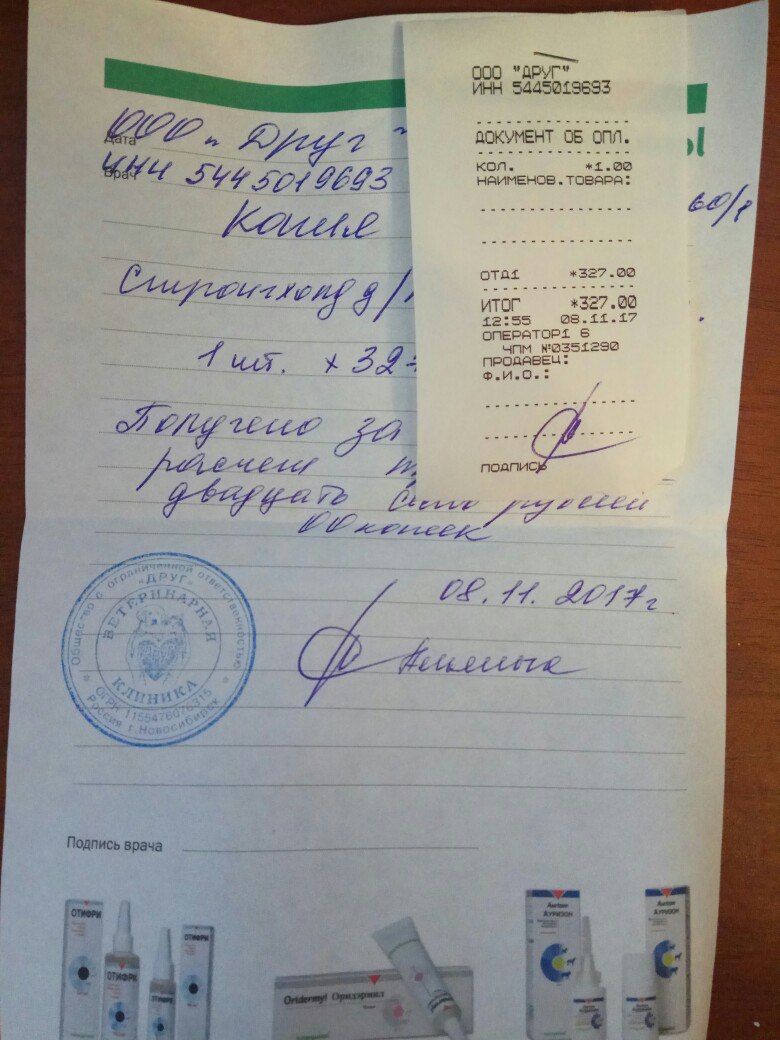 ООО "ДРУГ"
ИНН 5445019693
ДОКУМЕНТ ОБ ОПЛ.
КОЛ. *1.00
НАИМЕНОВ.ТОВАРА:
ОТД1 *327.00
ИТОГ *327.00
12:55 08.11.17
ОПЕРАТОР1 6
ЧПМ №0351290
ПРОДАВЕЦ:
Ф.И.О.:
ПОДПИСЬ
Дата
ООО "Друг"
Врач
ИНН 5445019693
Стронгхолд д/
1 шт. х 327
Получено за
расчет
двадцать семь рублей
00 копеек
08.11.2017г.
Общество с ограниченной ответственностью
"ДРУГ"
ВЕТЕРИНАРНАЯ
КЛИНИКА
Россия г.Новосибирск
Подпись врача
ОТИФРИ
ОТИФРИ
ОТИФРИ
Oridermyl Оридермил
Ауризон
Ауризон